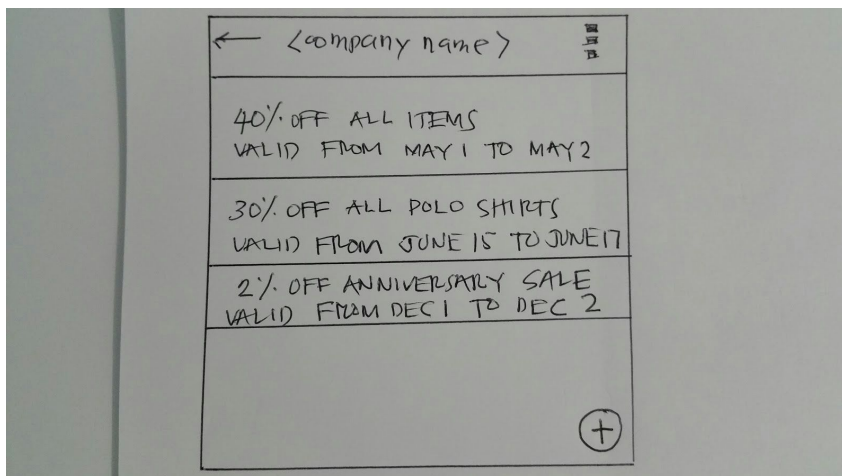 <company name>
40% OFF ALL ITEMS
VALID FROM MAY 1 TO MAY 2
30% OFF ALL POLO SHIRTS
VALID FROM JUNE 15 TO JUNE 17
2% OFF ANNIVERSARY SALE
VALID FROM DEC 1 TO DEC 2